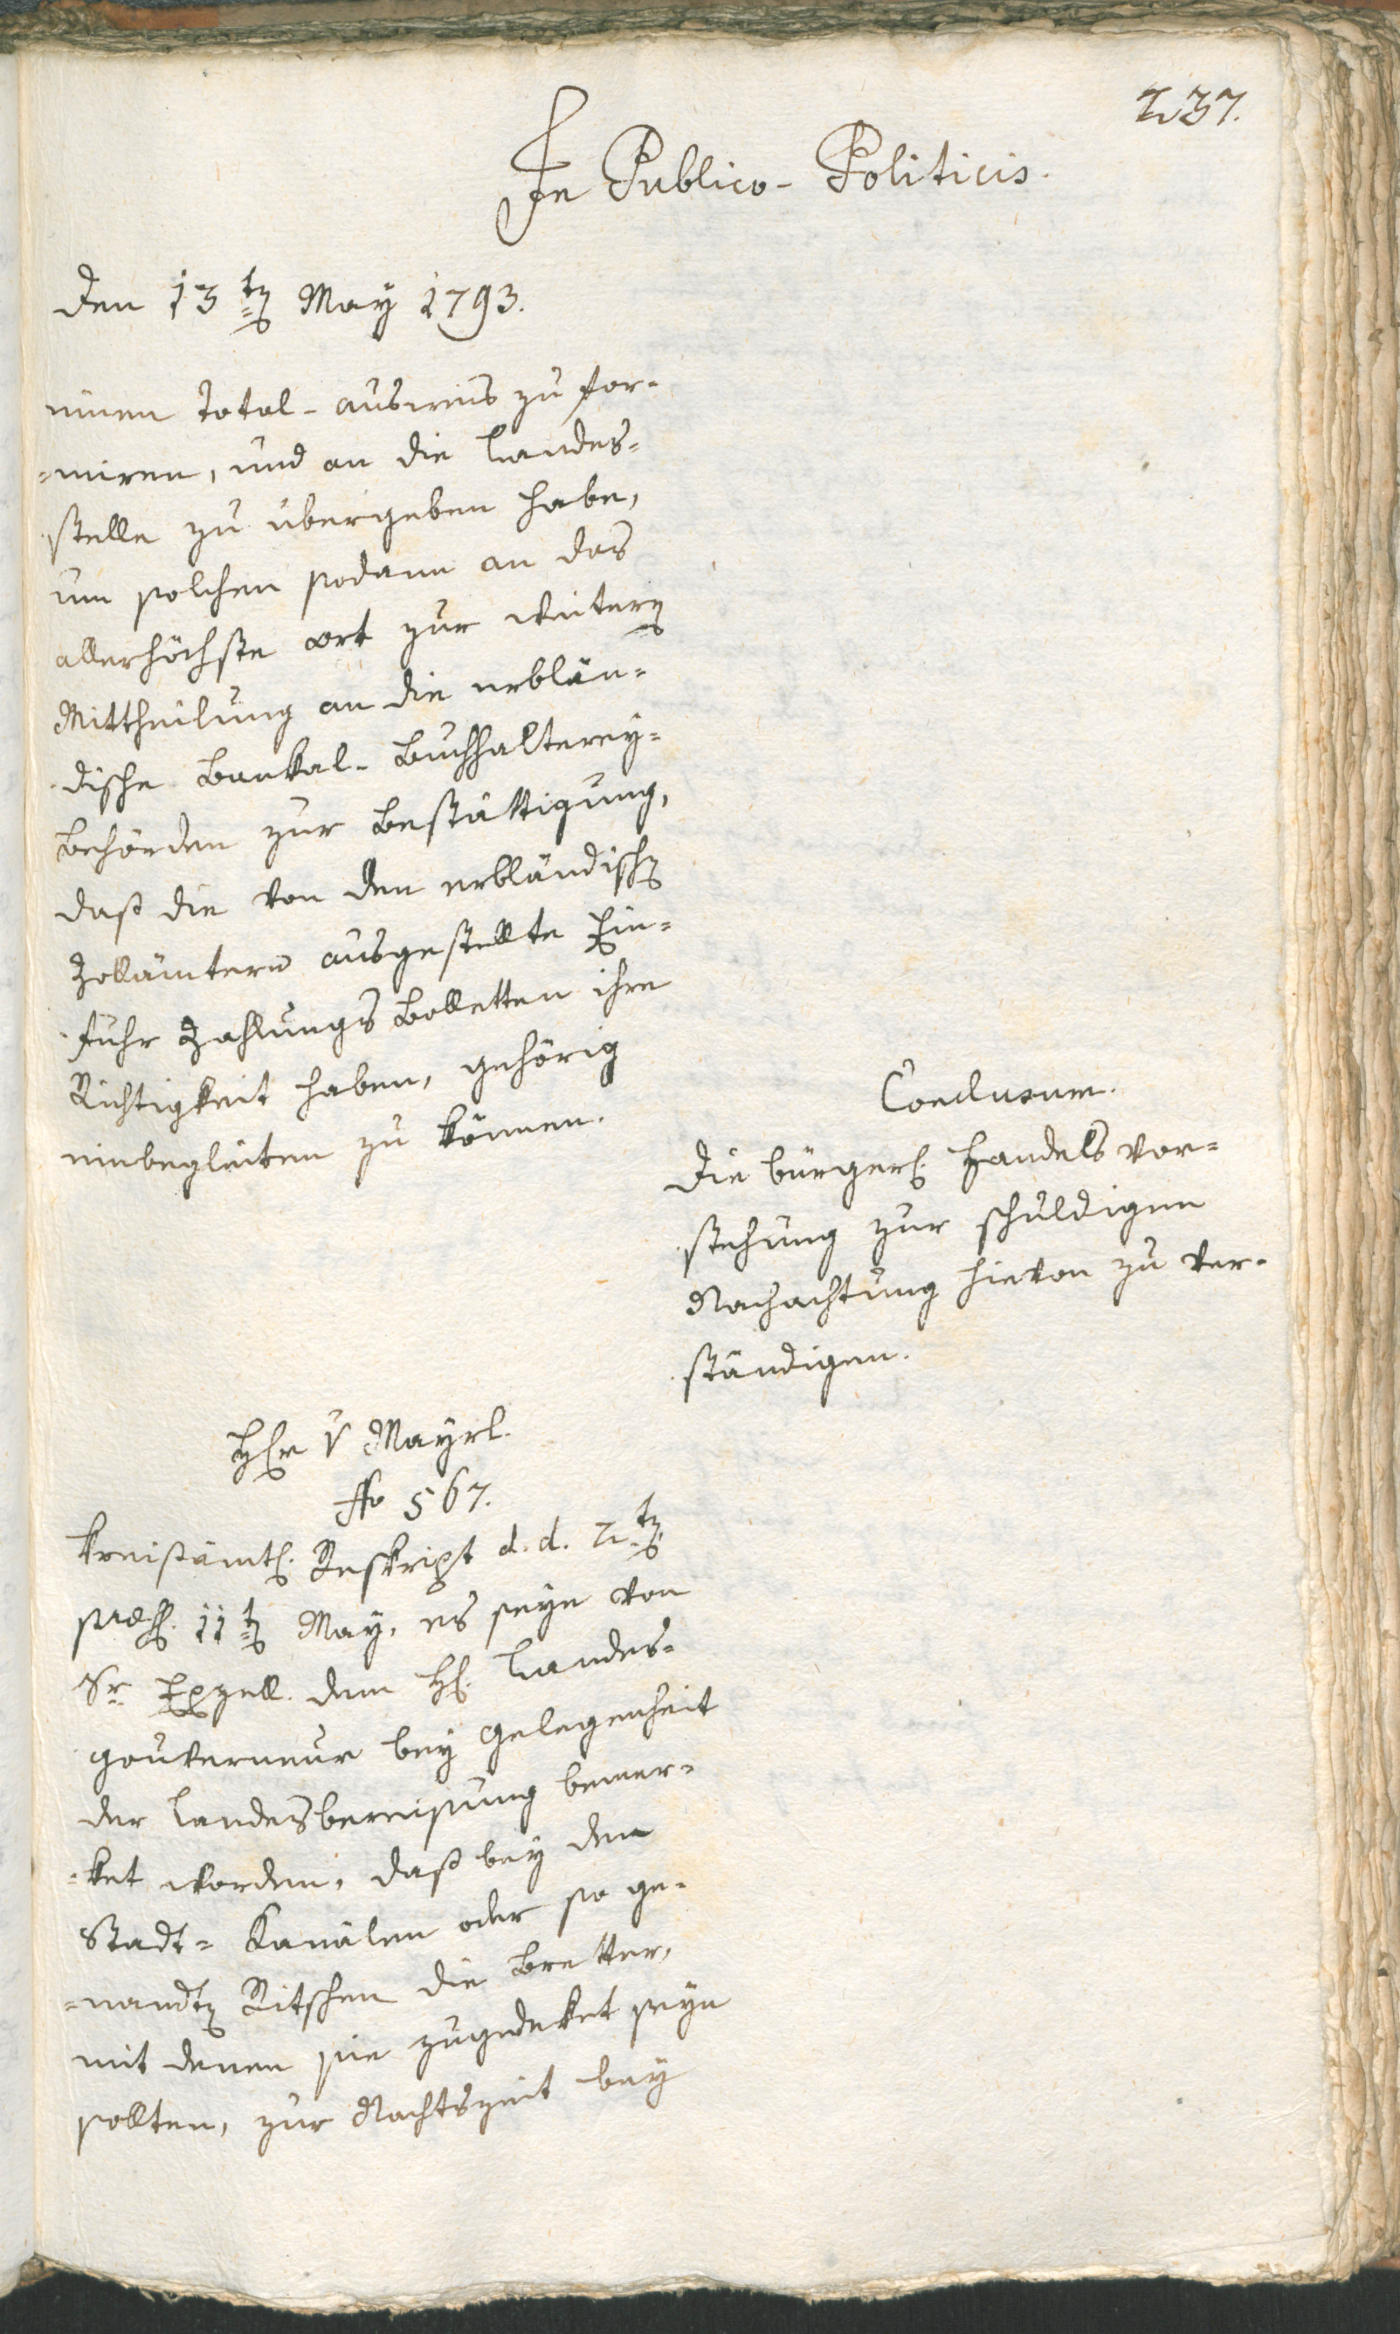 237.
In Publico-Politicis.
den 13t May 1793.
einen Total-ausweis zu for-
=miren, und an die Landes=
stelle zu übergeben habe,
um solchen sodann an das
allerhöchste ort zur weitern
Mittheilung an die erblän=
dische Bankal-Buchhalterey=
Behörden zur Bestättigung,
daß die von den erbländischen
Zollämtern ausgestellte Ein=
fuhr Zahlungs Bolletten ihre
Richtigkeit haben, gehörig
einbegleiten zu können.
Conclusum.
die bürgerl. Handels vor=
stehung zur schuldigen
Nachachtung hievon zu ver-
ständigen.
Hr v Mayrl.
No 567.
Kreisämtl. Reskript d. d. 2t
11t May, es seye von
Sr Exzell. dem H. Landes=
gouverneur bey Gelegenheit
der Landesbereisung bemer=
=ket worden, daß bey den
Stadt= Kanälen oder so ge=
=nandten Ritschen die Bretter,
mit denen sie zugedeket seyn
sollten, zur Nachtszeit bey